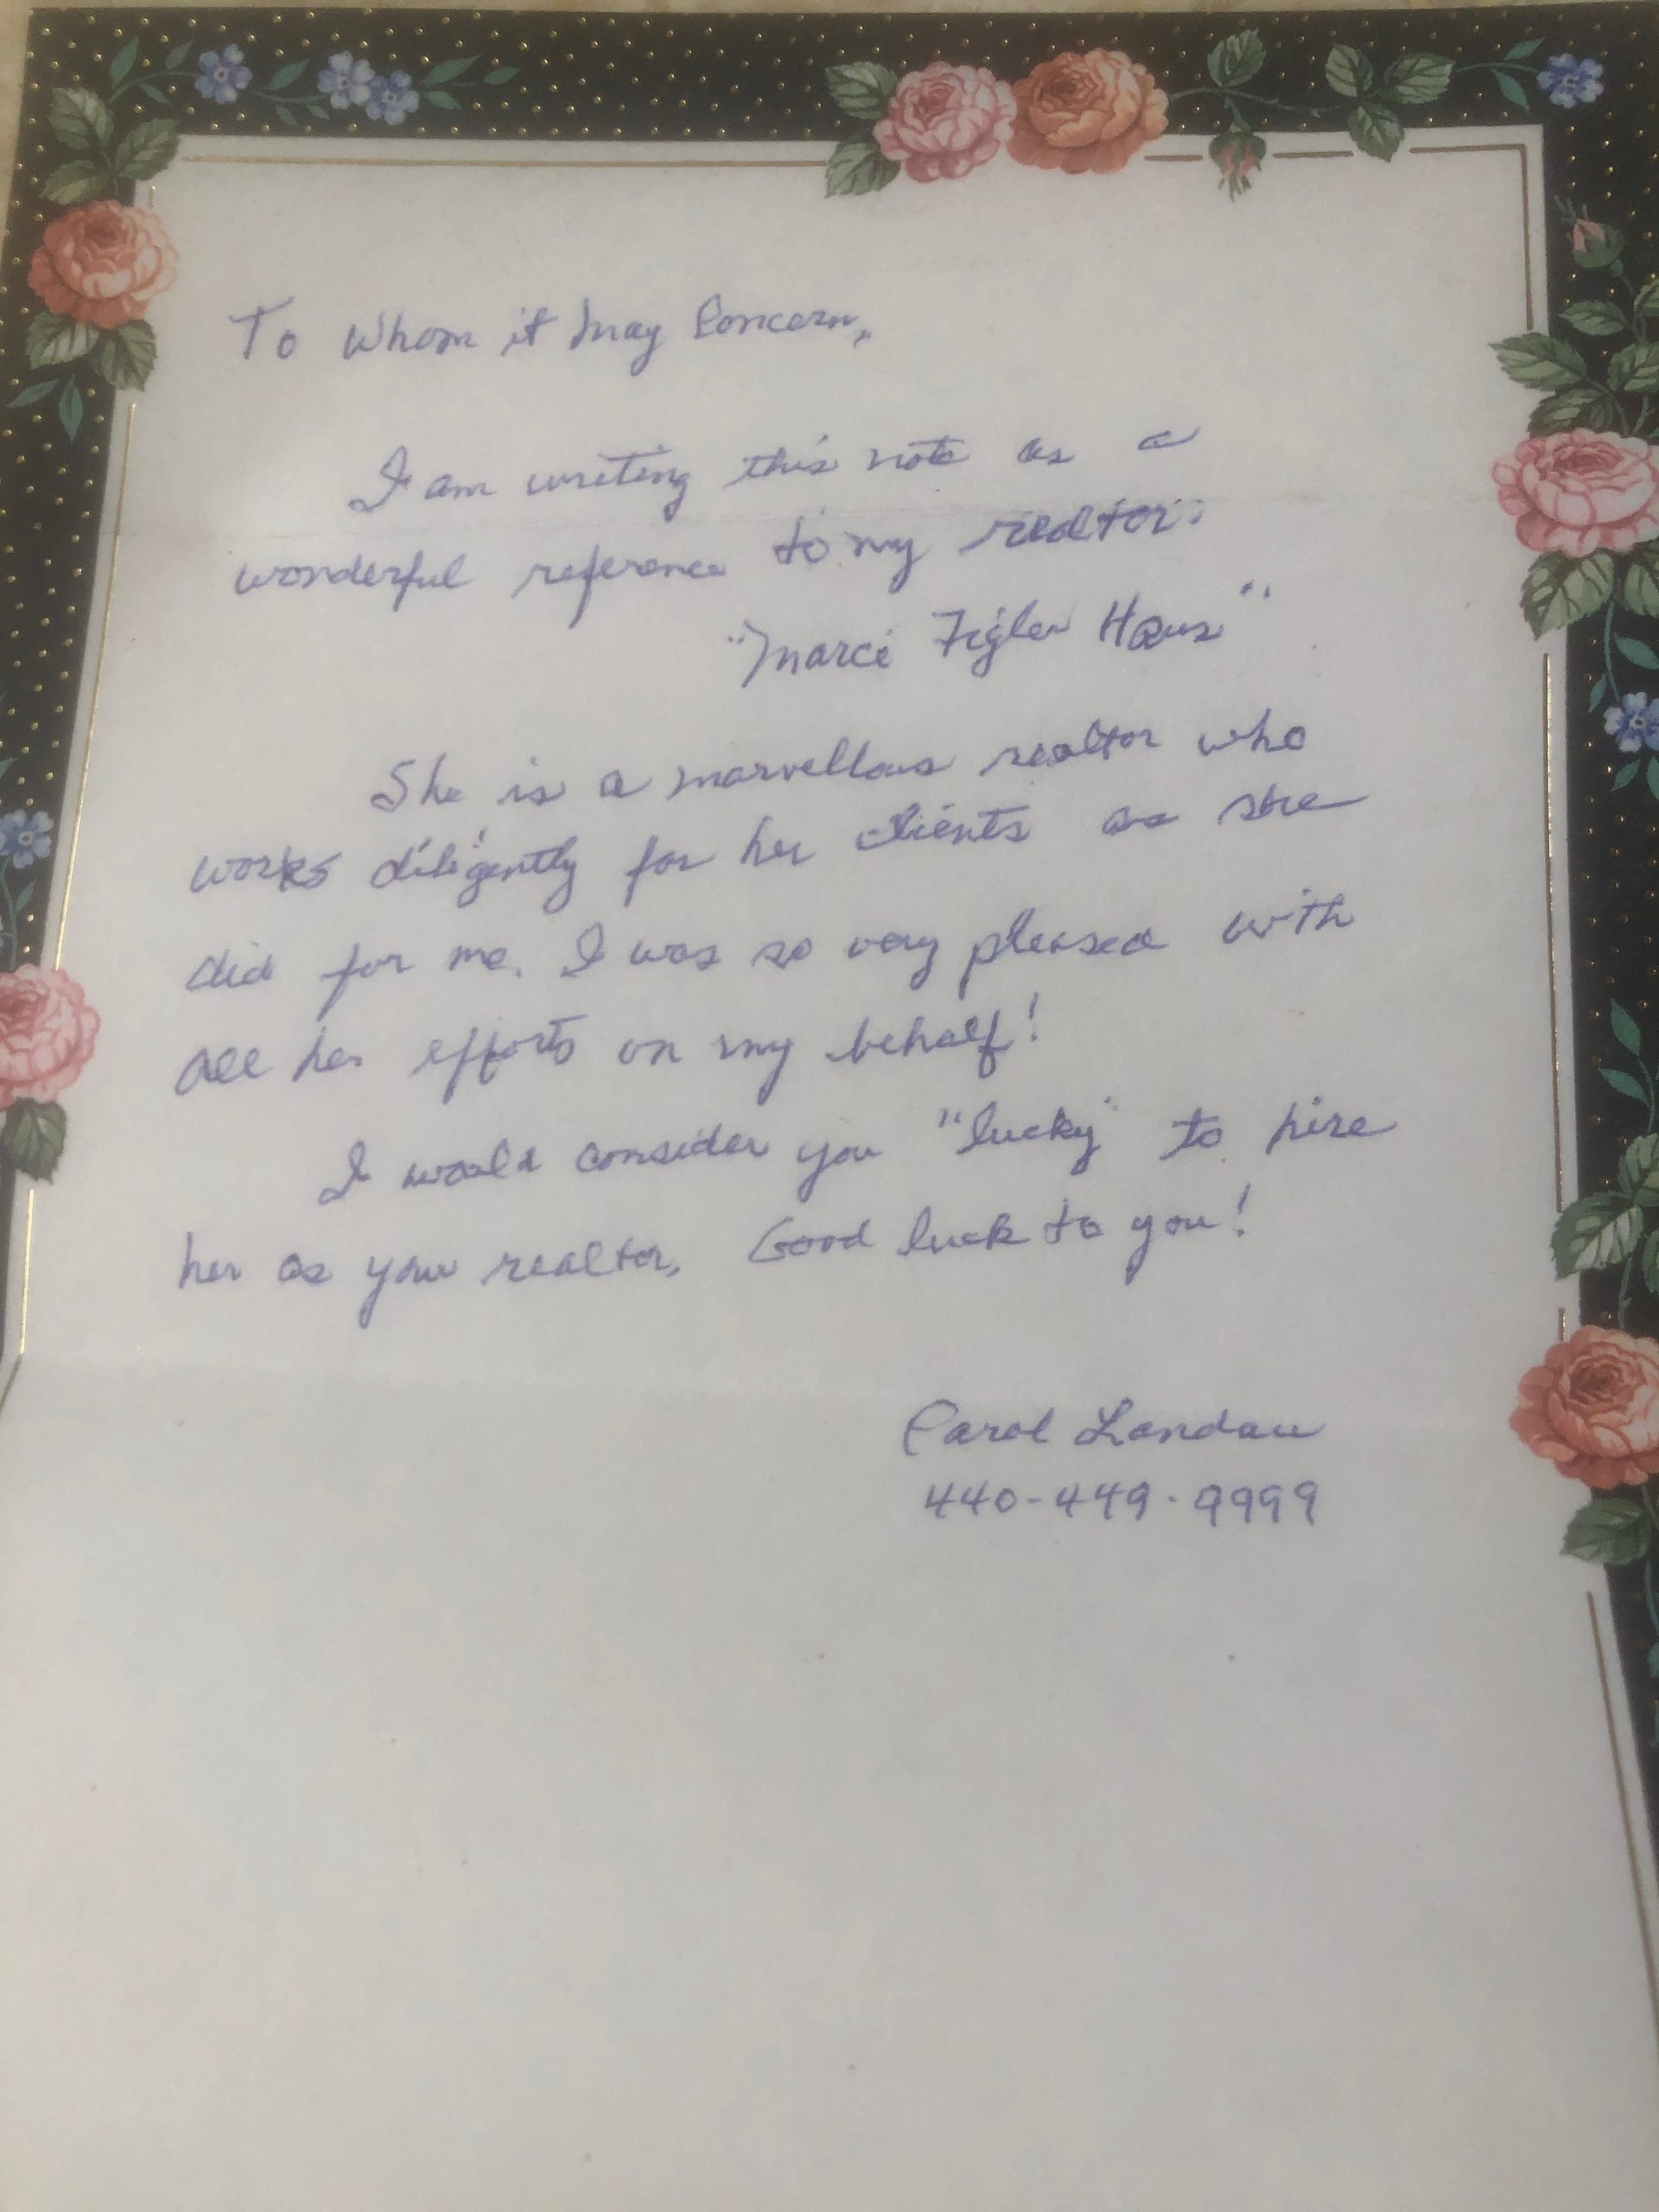 To Whom it May Concern,
I am writing this note as a
wonderful reference to my realtor:
"Marci Figler Haus"
She is a marvellous realtor who
works diligently for her clients as she
did for me. I was so very pleased with
all her efforts on my behalf!
I would consider you "lucky" to hire
her as your realtor. Good luck to you!
Carol Landau
440-449-9999